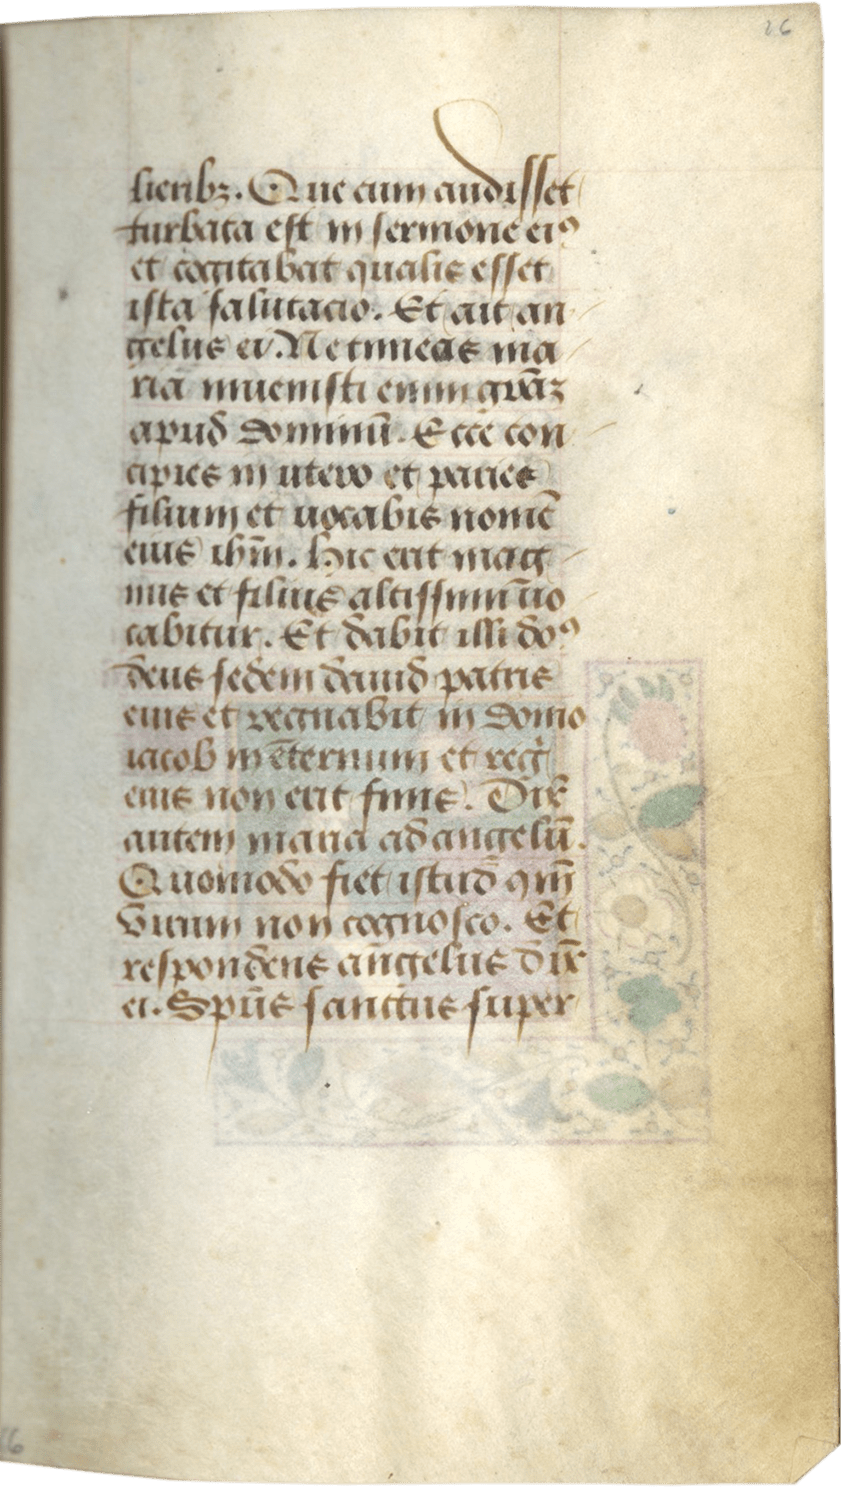 26
lieribꝫ. Que cum audisset
turbata est in sermone eiꝰ
et cogitabat qualis esset
ista salutacio. Et ait an
gelus ei. Ne timeas ma
ria inuenisti enim gr̄az
apud dominū. Ecce con
cipies in utero et paries
filium et uocabis nomē
eius ihm̄. Hic erit mag
nus et filius altissimi uo
cabitur. Et dabit illi doꝰ
deus sedem dauid patris
eius et regnabit in domo
iacob in eternum et reḡ
eius non erit finis. Dix̄
autem maria ad angelū.
Quomodo fiet istud qm̄
uirum non cognosco. Et
respondens angelus dix̄
ei. Sp̄us sanctus super